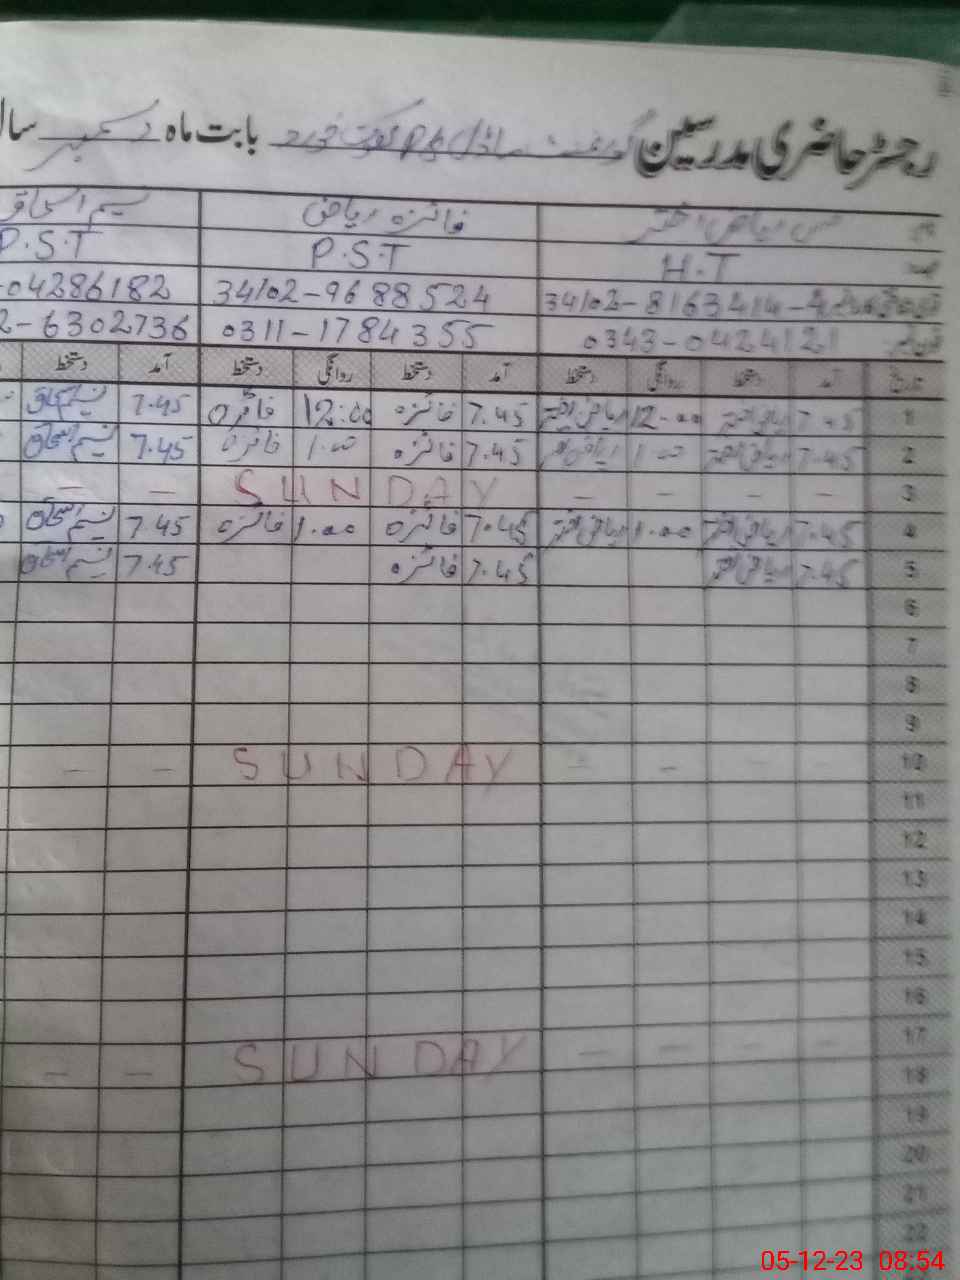 رجسٹر حاضری مدرسین گورنمنٹ ماڈل P/S کوٹ خورد بابت ماہ دسمبر سال
نام ریاض اختر فائزہ ریاض نسیم اسحاق
عہدہ H.T P.S.T P.S.T
34102-8163414-4 34102-9688524 04286182
فون نمبر 0343-0424121 0311-1784355 2-6302736
تاریخ آمد دستخط روانگی دستخط آمد دستخط روانگی دستخط آمد دستخط
1 7.45 ریاض اختر 12.00 ریاض اختر 7.45 فائزہ 12:00 فائزہ 7.45 نسیم اسحاق
2 7.45 ریاض اختر 1.00 ریاض اختر 7.45 فائزہ 1.00 فائزہ 7.45 نسیم اسحاق
3 – – – – SUNDAY – –
4 7.45 ریاض اختر 1.00 ریاض اختر 7.45 فائزہ 1.00 فائزہ 7.45 نسیم اسحاق
5 7.45 ریاض اختر 7.45 فائزہ 7.45 نسیم اسحاق
6
7
8
9
10 – – – – SUNDAY – –
11
12
13
14
15
16
17 – – – – SUNDAY – –
18
19
20
21
22
05-12-23 08:54